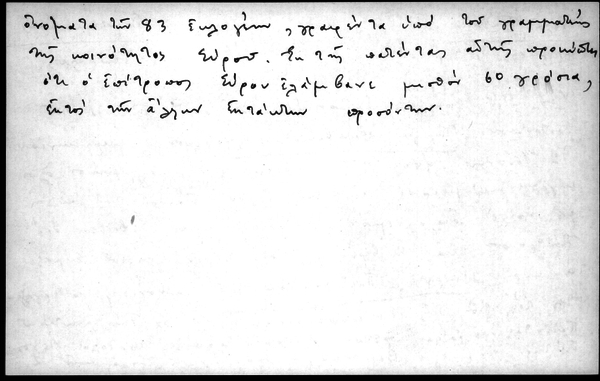 ὀνόματα τῶν 83 ἐκλογέων, γραφέντα ὑπό τοῦ γραμματέως
τῆς κοινότητος Σύρου. Ἐκ τῆς πατέντας αὐτῆς προκύπτει
ὅτι ὁ ἐπίτροπος Σύρου ἐλάμβανε μισθόν 60 γρόσια,
ἐκτός τῶν ἄλλων ἐκτάκτων προσόντων.